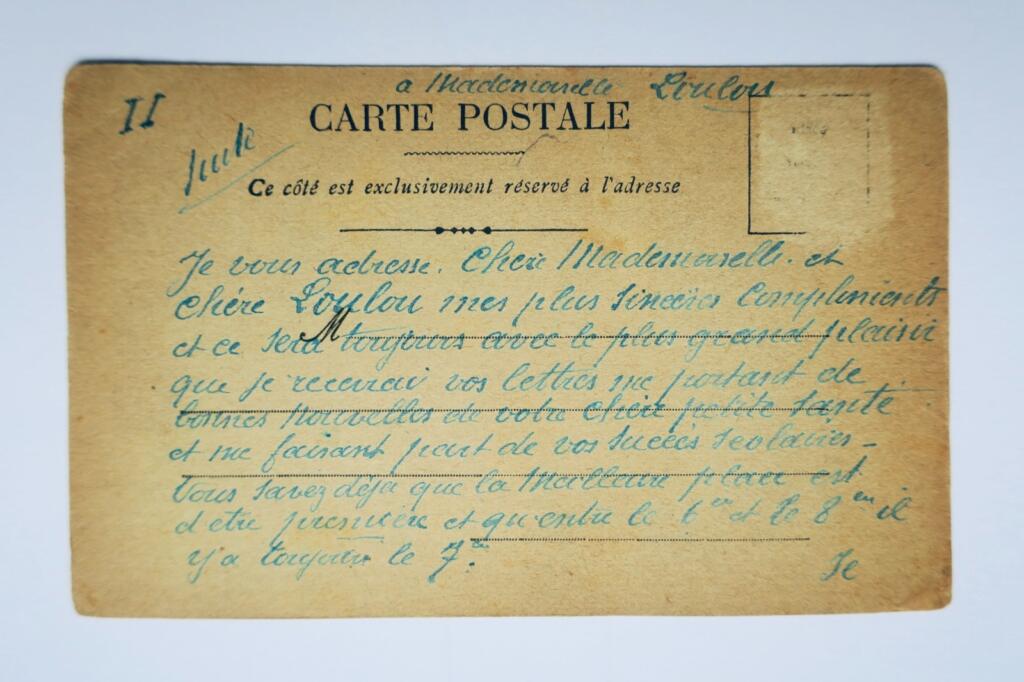 à Mademoiselle Loulou
II
suite
CARTE POSTALE
Ce côté est exclusivement réservé à l'adresse
Je vous adresse. Chère Mademoiselle. et
Chère Loulou mes plus sincères Compliments
M
et ce sera toujours avec le plus grand plaisir
que je recevrai vos lettres me portant de
bonnes nouvelles de votre chère petite santé.
et me faisant part de vos succès scolaires_
Vous savez déjà que la Meilleure place est
d'etre première et qu'entre le 6em et le 8em il
y a toujours le 7e.
Je